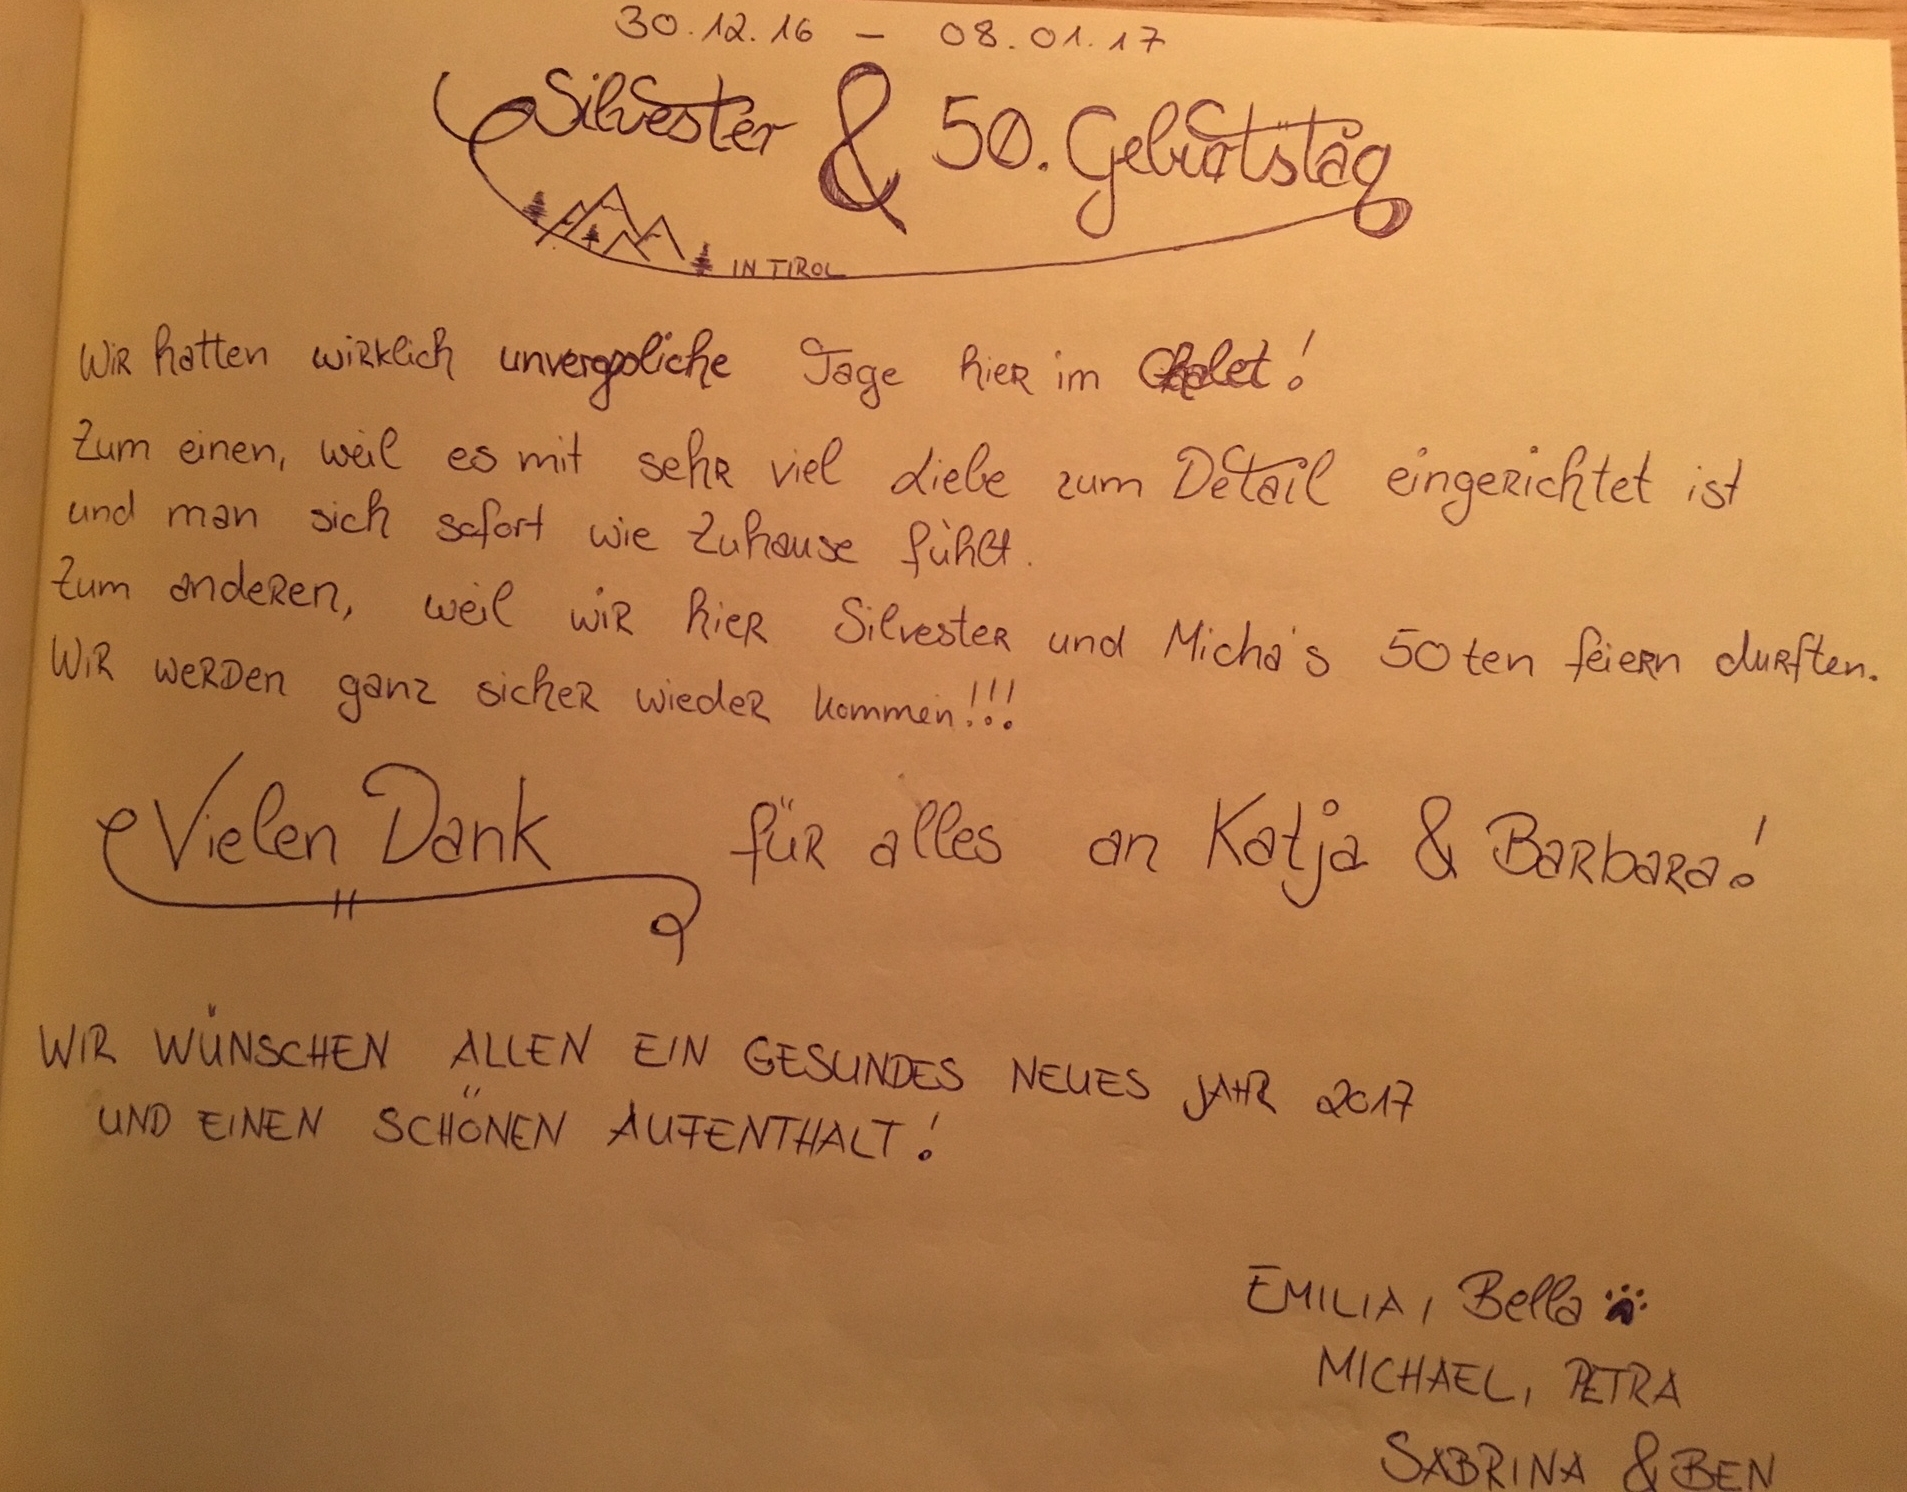 30.12.16 – 08.01.17
Silvester & 50. Geburtstag
IN TIROL
Wir hatten wirklich Tage hier im Chalet!
Zum einen, weil es mit sehr viel Liebe zum Detail eingerichtet ist
und man sich sofort wie Zuhause fühlt.
Zum anderen, weil wir hier Silvester und Micha's 50ten feiern durften.
Wir werden ganz sicher wieder kommen!!!
Vielen Dank für alles an Katja & Barbara!
WIR WÜNSCHEN ALLEN EIN GESUNDES NEUES JAHR 2017
UND EINEN SCHÖNEN AUFENTHALT!
EMILIA, Bella
MICHAEL, PETRA
SABRINA & BEN